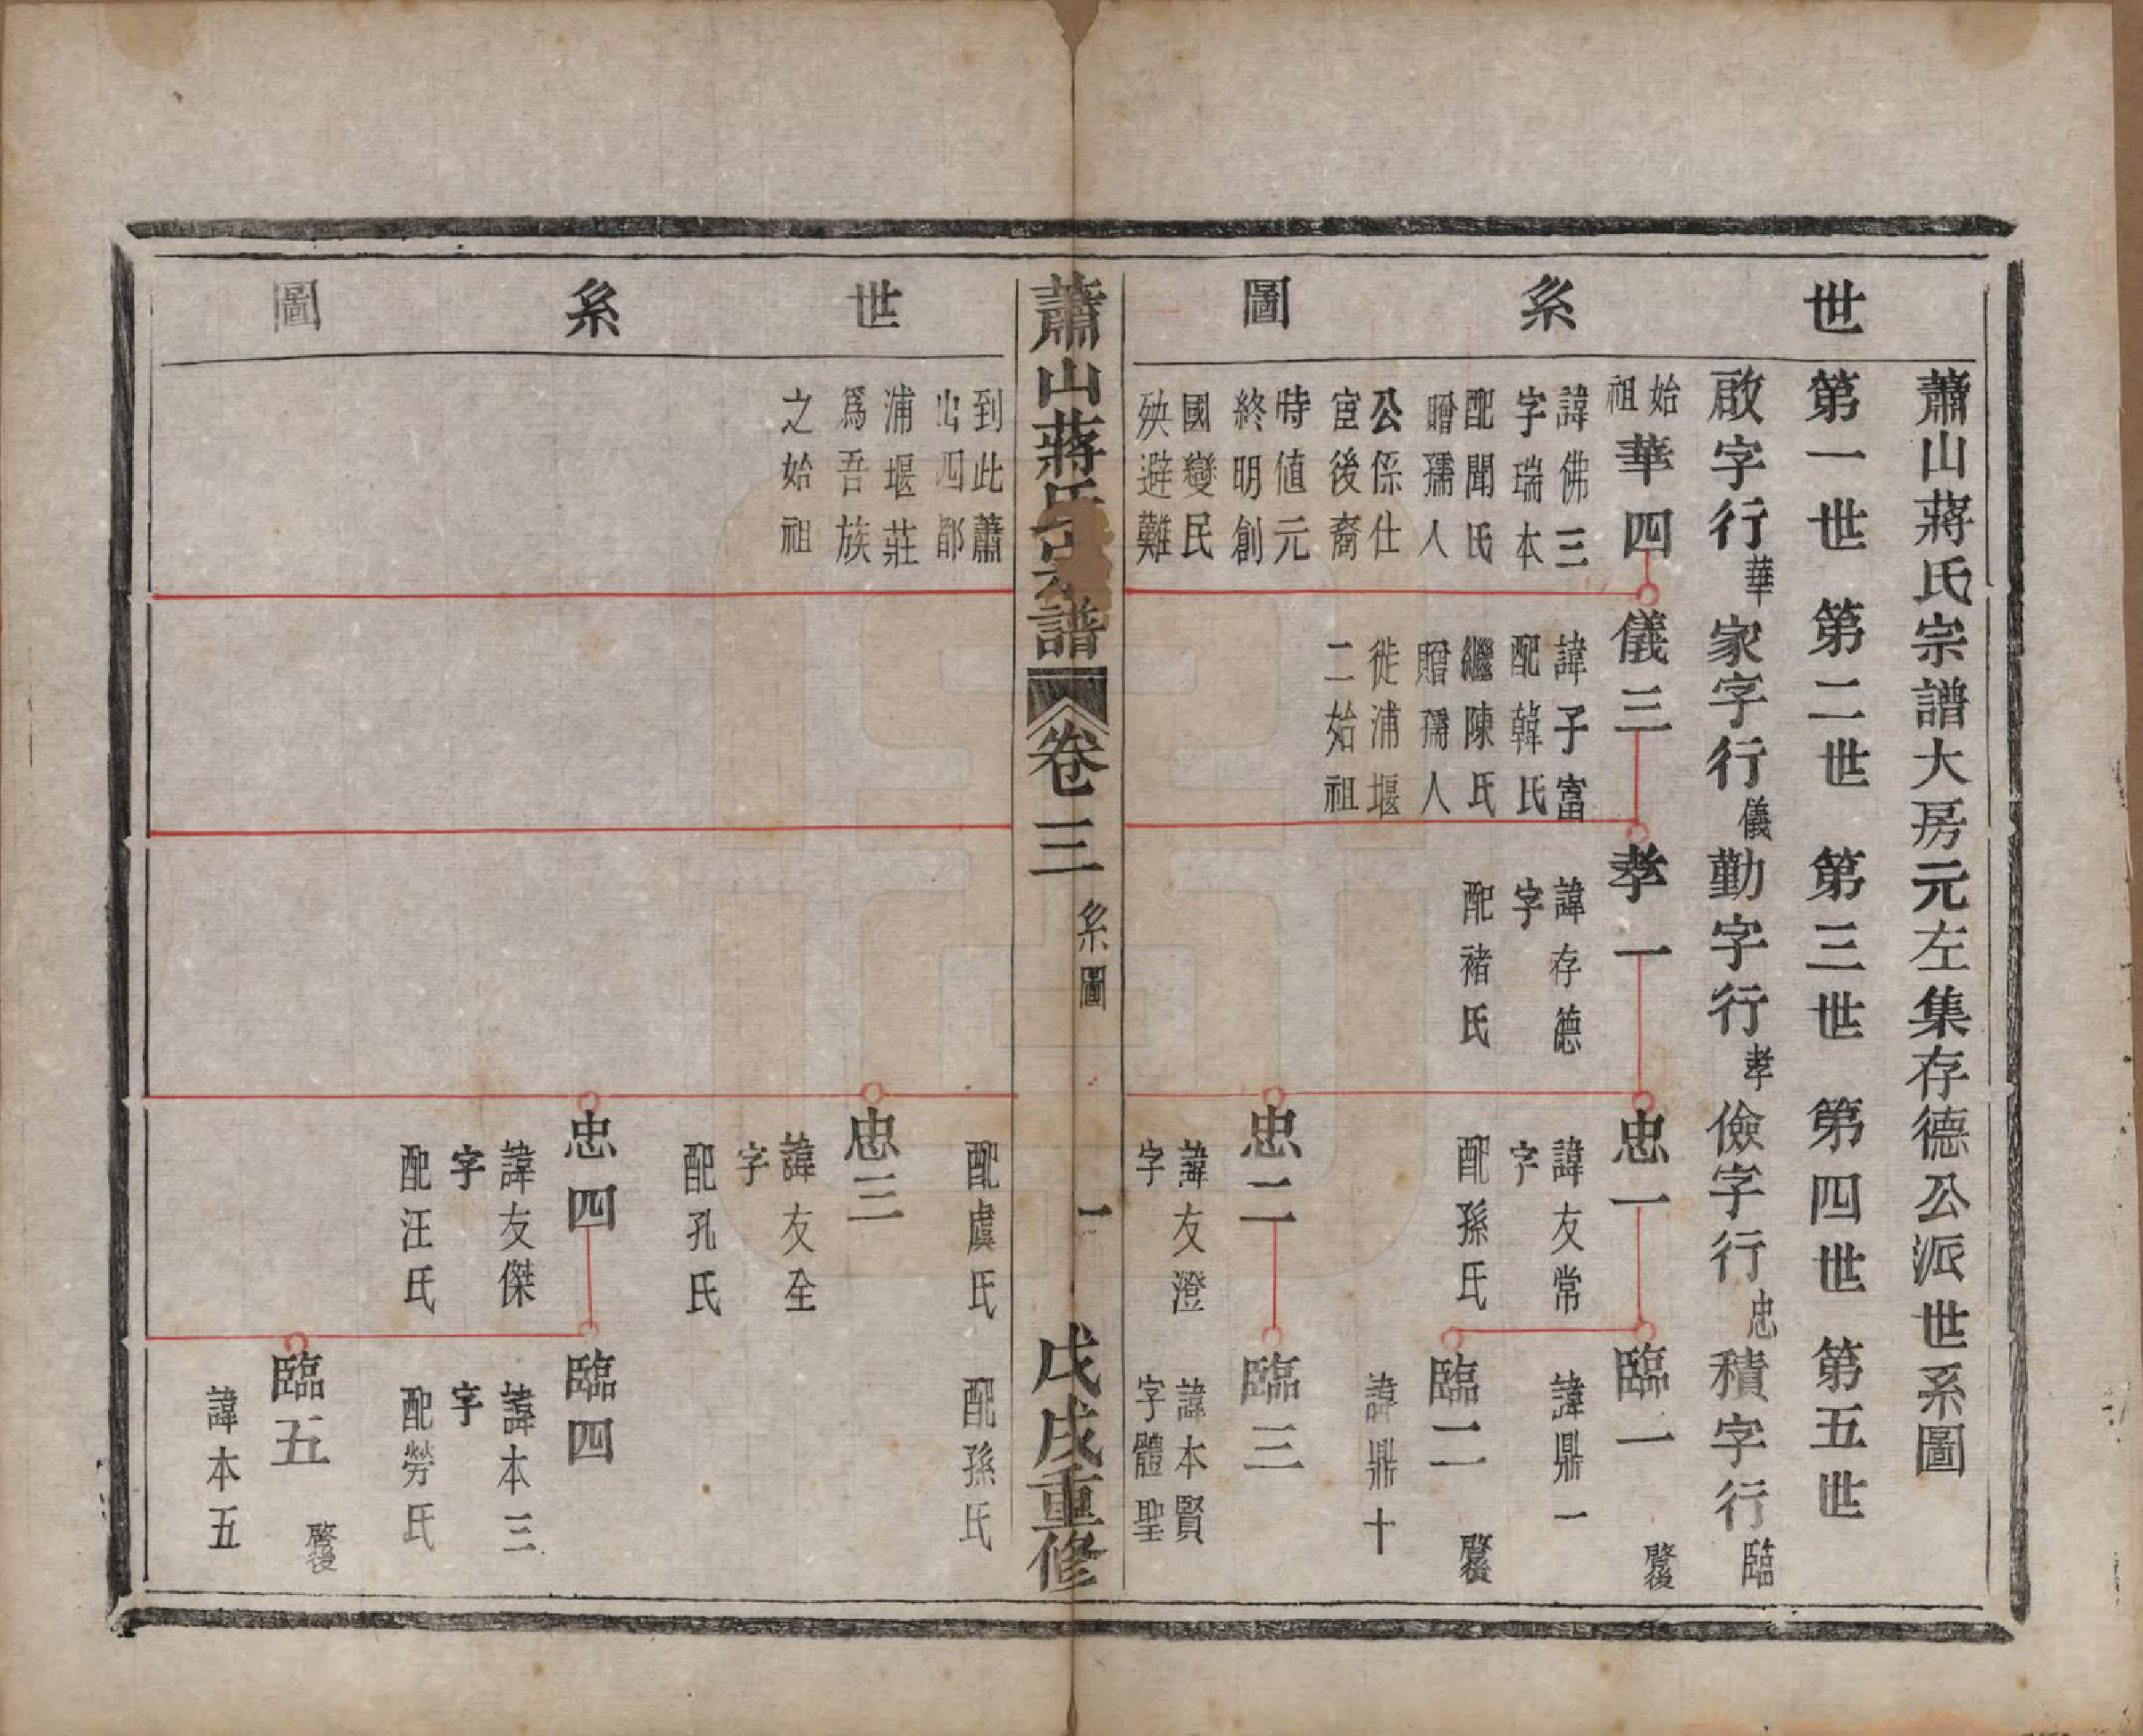 世系圖
蕭山蔣氏宗譜大房元左集存德公派世系圖
第一世 第二世 第三世 第四世 第五世
啟字行華 家字行儀 勤字行孝 儉字行忠 積字行臨
始祖
華四
諱佛三
字瑞本
配聞氏
贈孺人
公係仕
宦後裔
時值元
終明創
國變民
殃避難
儀三
諱子富
配韓氏
繼陳氏
贈孺人
徙浦堰
二始祖
孝一
諱存德
字
配褚氏
忠一
諱友常
字
配孫氏
忠二
諱友澄
字
臨一 啓後
諱鼎一
臨二 啓後
諱鼎十
臨三
諱本賢
字體聖
蕭山蔣氏宗譜 卷三 系圖 一 戊戌重修
世系圖
到此蕭
山四都
浦堰莊
爲吾族
之始祖
配虞氏
忠三
諱友全
字
配孔氏
忠四
諱友傑
字
配汪氏
配孫氏
臨四
諱本三
字
配勞氏
臨五 啓後
諱本五